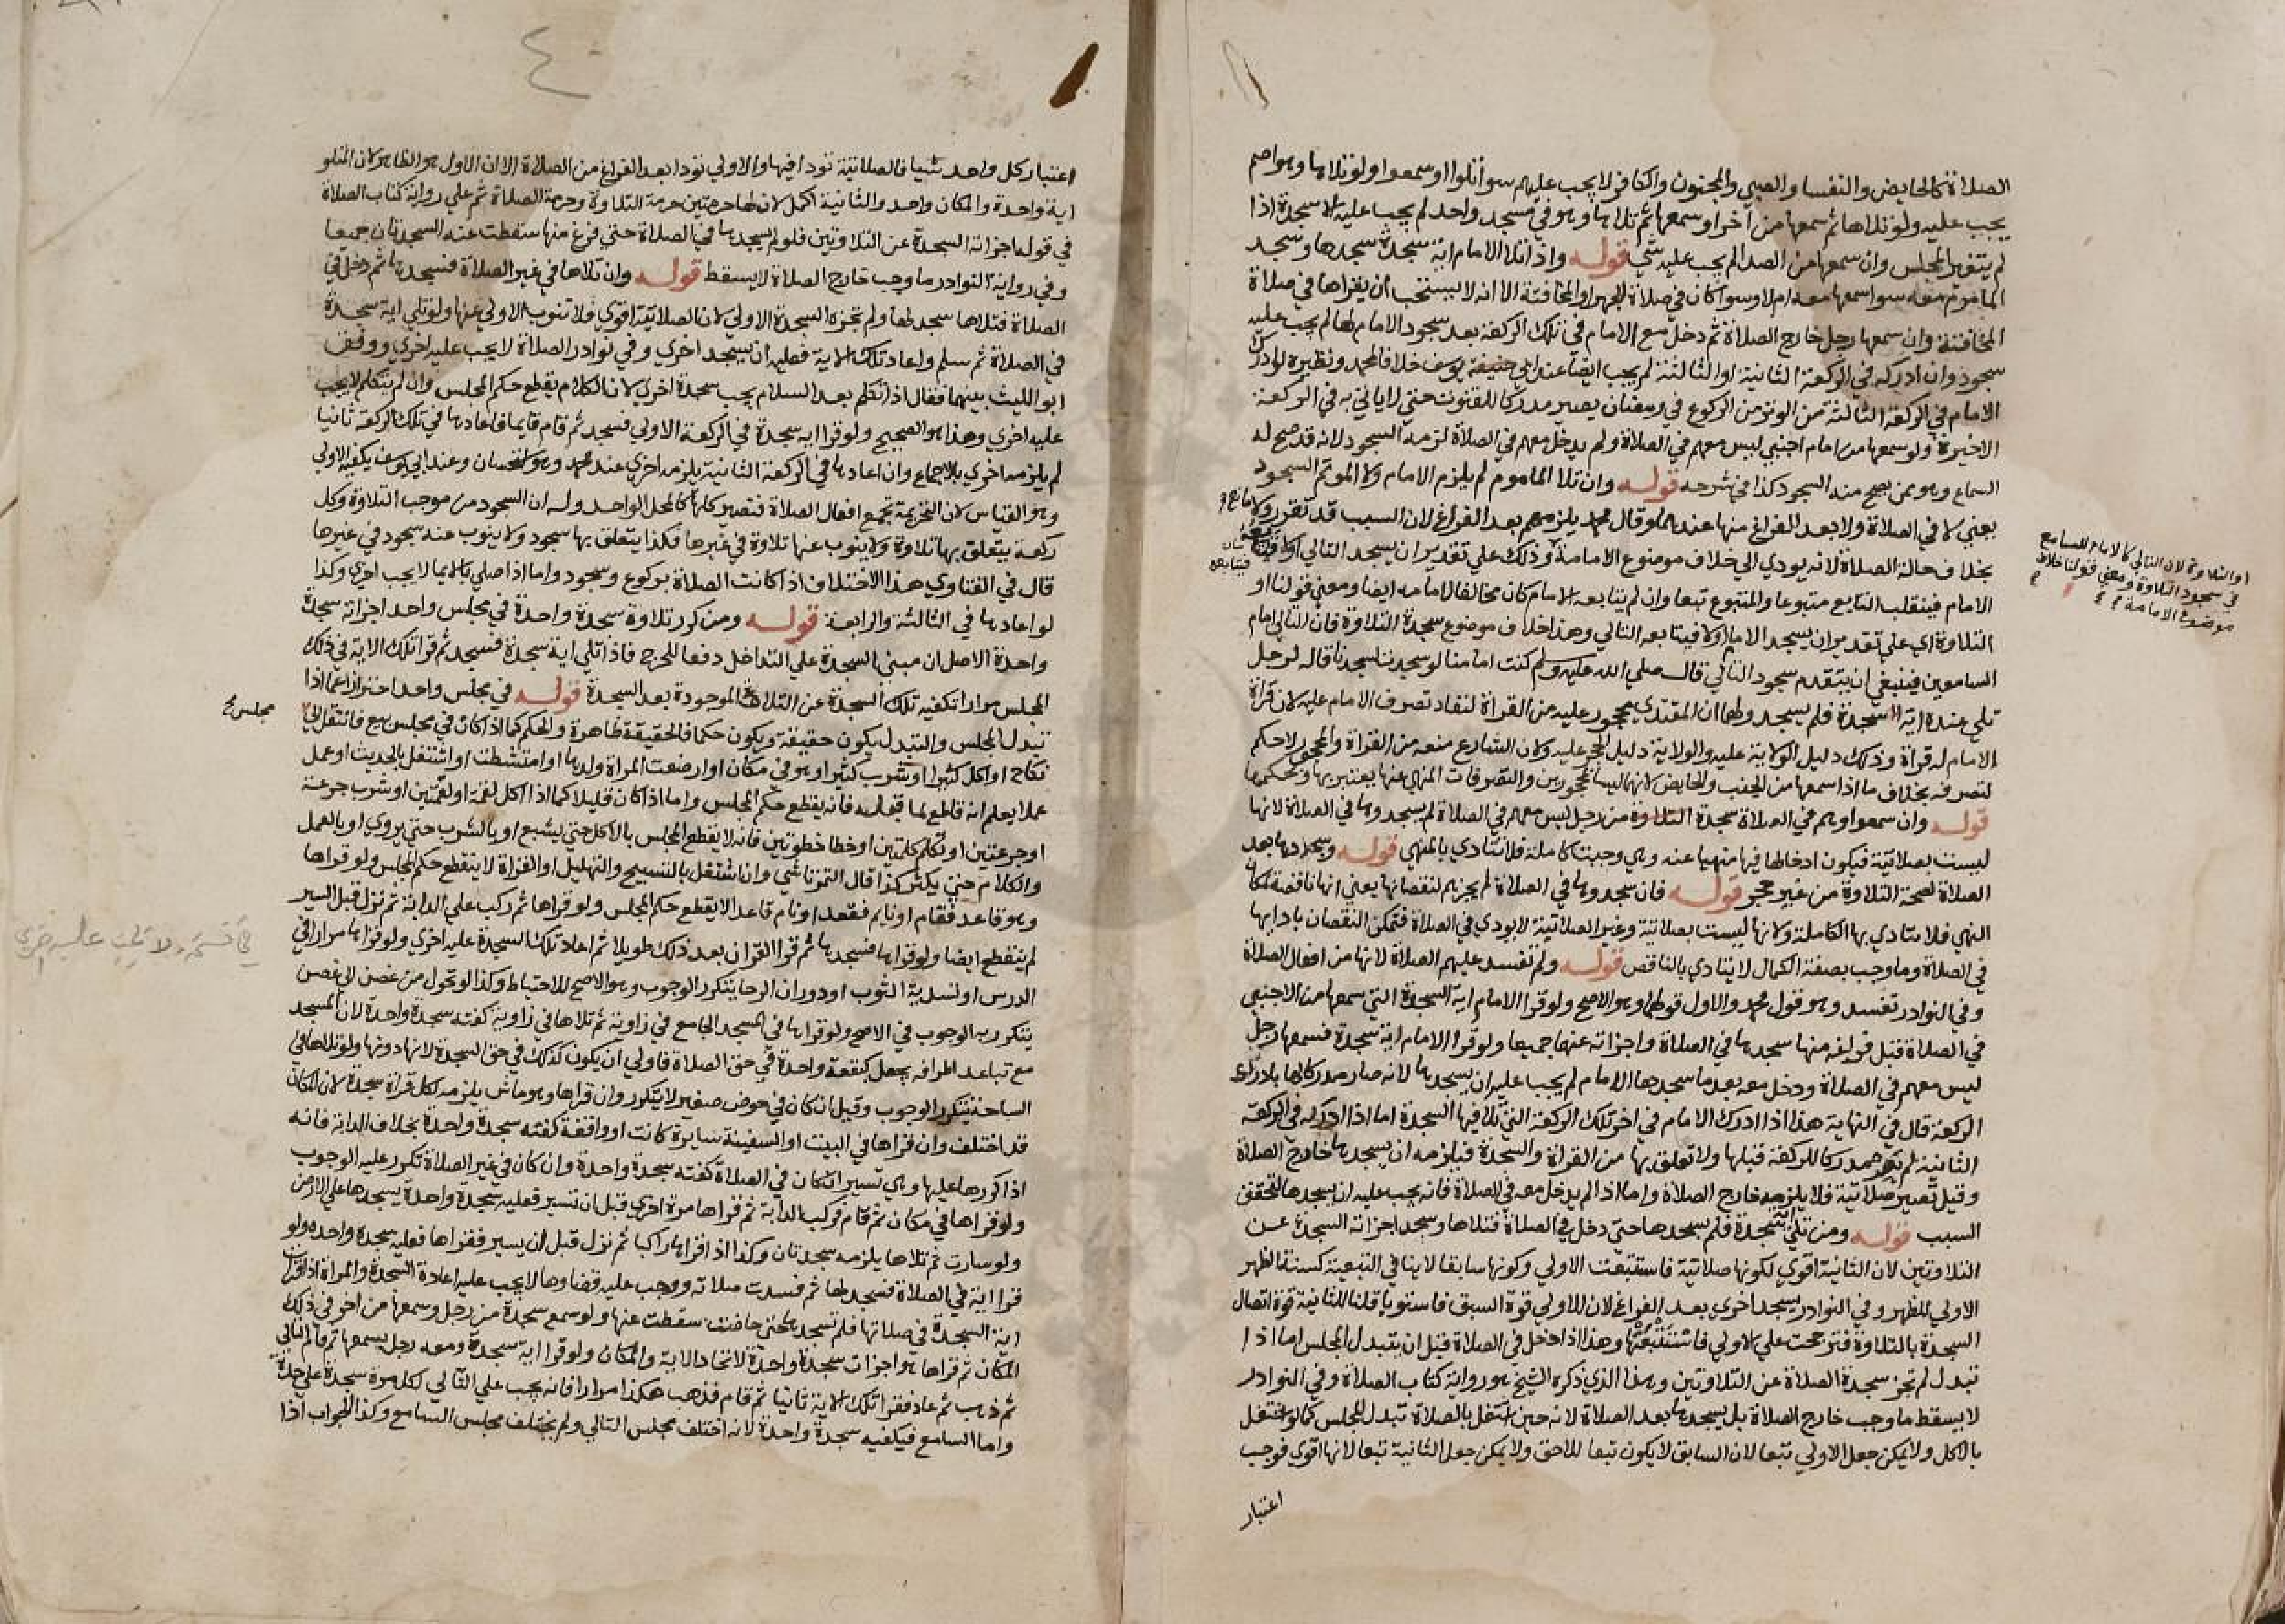 الصلاة كالحايض والنفسا والصبي والمجنون والكافر لا يجب عليهم سوا تلوا او سمعوا ولو تلاها وهو اصم
يجب عليه ولو تلاها ثم سمعها من اخر او سمعها ثم تلاها وهو في مسجد واحد لم يجب عليه الا سجدة اذا
لم يتغير المجلس وان سمعها من الصدا لم يجب عليه شي قوله واذا تلا الامام اية سجدة سجدها وسجد
الماموم معه سوا سمعها معه ام لا وسوا كان في صلاة الجهر او المخافتة الا انه لا يستحب ان يقراها في صلاة
المخافتة وان سمعها رجل خارج الصلاة ثم دخل مع الامام في تلك الركعة بعد سجود الامام لها لم يجب عليه
سجود وان ادركه في الركعة الثانية او الثالثة لم يجب ايضا عند ابي حنيفة يوسف خلافا لمحمد ونظيره لو ادرك
الامام في الركعة الثالثة من الوتر من الركوع في رمضان يصير مدركا للقنوت حتى لا ياتي به في الركعة
الاخيرة ولو سمعها من امام اجنبي ليس معهم في الصلاة ولم يدخل معهم في الصلاة لزمه السجود لانه قد صح له
السماع وهو ممن يصح منه السجود كذا في شرحه قوله وان تلا الماموم لم يلزم الامام ولا الموتم السجود
يعني لا في الصلاة ولا بعد الفراغ منها عندهما وقال محمد يلزمهم بعد الفراغ لان السبب قد تقرر ولا مانع
بخلاف حالة الصلاة لانه يودي الي خلاف موضوع الامامة وذلك علي تقدير ان يسجد التالي اولا
الامام فينقلب التابع متبوعا والمتبوع تبعا وان لم يتابعه الامام كان مخالفا لامامه ايضا ومعني قولنا او
التلاوة اي علي تقدير ان يسجد الامام اولا فيتابعه التالي وهذا خلاف موضوع سجدة التلاوة فان التالي امام
السامعين فينبغي ان يتقدم سجود التالي قال صلي الله عليه وسلم كنت امامنا لو سجدت لسجدنا قاله لرجل
تلي عنده اية السجدة فلم يسجد ولهما ان المقتدي محجور عليه من القراة لنفاد تصرف الامام عليه لان قراة
الامام له قراة وذلك دليل الولاية عليه والولاية دليل الحجر عليه ولان الشارع منعه من القراة والمحجور لا حكم
لتصرفه بخلاف ما اذا سمعها من الجنب والحايض لانهما ليسا بمحجورين والتصرفات المنهي عنها يعتبر بها وبحكمها
قوله وان سمعوا وهم في الصلاة سجدة التلاوة من رجل ليس معهم في الصلاة لم يسجدوها في الصلاة لانها
ليست بصلاتية فيكون ادخالها فيها منهيا عنه وهي وجبت كاملة فلا تتادي بالمنهي قوله وسجدوها بعد
الصلاة لصحة التلاوة من غير حجر قوله فان سجدوها في الصلاة لم يجزهم لنقصانها يعني انها ناقصة لمكان
النهي فلا يتادي بها الكاملة ولانها ليست بصلاتية وغير الصلاتية لا يودي في الصلاة فتمكن النقصان بادايها
في الصلاة وما وجب بصفة الكمال لا يتادي بالناقص قوله ولم تفسد عليهم الصلاة لانها من افعال الصلاة
وفي النوادر تفسد وهو قول محمد والاول قولهما وهو الاصح ولو قرا الامام اية السجدة التي سمعها من الاجنبي
في الصلاة قبل فراغه منها سجدها في الصلاة واجزاته عنهما جميعا ولو قرا الامام اية سجدة فسمعها رجل
ليس معهم في الصلاة ودخل معه بعد ما سجدها الامام لم يجب عليه ان يسجدها لانه صار مدركا لها بادراك
الركعة قال في النهاية هذا اذا ادرك الامام في اخر تلك الركعة التي تلا فيها السجدة اما اذا ادركه في الركعة
الثانية لم يصر مدركا للركعة قبلها ولا تعلق بها من القراة والسجدة فيلزمه ان يسجدها خارج الصلاة
وقيل تصير صلاتية فلا يلزمه خارج الصلاة واما اذا لم يدخل معه في الصلاة فانه يجب عليه ان يسجدها لتحقق
السبب قوله ومن تلي اية سجدة فلم يسجدها حتي دخل في الصلاة فتلاها وسجد اجزاته السجدة عن
التلاوتين لان الثانية اقوي لكونها صلاتية فاستتبعت الاولي وكونها سابقا لا ينافي التبعية كسنة الظهر
الاولي للظهر وفي النوادر يسجد اخري بعد الفراغ لان للاولي قوة السبق فاستويا قلنا للثانية قوة اتصال
السجدة بالتلاوة فترجحت علي الاولي فاستتبعتها وهذا اذا دخل في الصلاة قبل ان يتبدل المجلس اما اذا
تبدل لم تجز سجدة الصلاة عن التلاوتين وهذا الذي ذكره الشيخ هو رواية كتاب الصلاة وفي النوادر
لا يسقط ما وجب خارج الصلاة بل يسجدها بعد الصلاة لانه حين اشتغل بالصلاة تبدل المجلس كما لو اشتغل
بالاكل ولا يمكن جعل الاولي تبعا لان السابق لا يكون تبعا للاحق ولا يمكن جعل الثانية تبعا لانها اقوي فوجب
اعتبار
او التلاوة لان التالي كالامام للسامع
في سجود التلاوة ومعني قولنا خلاف
موضوع الامامة
اعتبار كل واحد شيا فالصلاتية تودا فيها والاولي تودا بعد الفراغ من الصلاة الا ان الاول هو الظاهر لان المتلو
اية واحدة والمكان واحد والثانية اكمل لان لها حرمتين حرمة التلاوة وحرمة الصلاة ثم علي رواية كتاب الصلاة
في قوله اجزاته السجدة عن التلاوتين فلو لم يسجدها في الصلاة حتي فرغ منها سقطت عنه السجدتان جميعا
وفي رواية النوادر ما وجب خارج الصلاة لا يسقط قوله وان تلاها في غير الصلاة فسجدها ثم دخل في
الصلاة فتلاها سجد لها ولم تجزه السجدة الاولي لان الصلاتية اقوي فلا تنوب الاولي عنها ولو تلي اية سجدة
في الصلاة ثم سلم واعاد تلك الاية فعليه ان يسجد اخري وفي نوادر الصلاة لا يجب عليه اخري ووفق
ابو الليث بينهما فقال اذا تكلم بعد السلام يجب سجدة اخري لان الكلام يقطع حكم المجلس وان لم يتكلم لا يجب
عليه اخري وهذا هو الصحيح ولو قرا اية سجدة في الركعة الاولي فسجد ثم قام قايما فاعادها في تلك الركعة ثانيا
لم يلزمه اخري بالاجماع وان اعادها في الركعة الثانية يلزمه اخري عند محمد وهو استحسان وعند ابي يوسف يكفيه الاولي
وهو القياس لان التحريمة تجمع افعال الصلاة فتصير كلها كالمحل الواحد وله ان السجود من موجب التلاوة وكل
ركعة يتعلق بها تلاوة ولا ينوب عنها تلاوة في غيرها فكذا يتعلق بها سجود ولا ينوب عنه سجود في غيرها
قال في الفتاوي هذا الاختلاف اذا كانت الصلاة بركوع وسجود واما اذا صلي بالايما لا يجب اخري وكذا
لو اعادها في الثالثة والرابعة قوله ومن كرر تلاوة سجدة واحدة في مجلس واحد اجزاته سجدة
واحدة الاصل ان مبني السجدة علي التداخل دفعا للحرج فاذا تلي اية سجدة فسجد ثم قرا تلك الاية في ذلك
المجلس مرارا تكفيه تلك السجدة عن التلاوة الموجودة بعد السجدة قوله في مجلس واحد احترازا عما اذا
تبدل المجلس والتبدل يكون حقيقة ويكون حكما فالحقيقة ظاهرة والحكم كما اذا كان في مجلس بيع فانتقل الي
نكاح او اكل كثيرا او شرب كثيرا وهو في مكان او ارضعت المراة ولدها او امتشطت او اشتغل بالحديث او عمل
عملا يعلم انه قاطع لما قبله فانه يقطع حكم المجلس واما اذا كان قليلا كما اذا اكل لقمة او لقمتين او شرب جرعة
او جرعتين او تكلم كلمتين او خطا خطوتين فانه لا يقطع المجلس بالاكل حتي يشبع او بالشرب حتي يروي او بالعمل
والكلام حتي يكثر كذا قال التمرتاشي وان اشتغل بالتسبيح والتهليل او القراة لا ينقطع حكم المجلس ولو قراها
وهو قاعد فقام او نايم فقعد او نام قاعدا لا يقطع حكم المجلس ولو قراها ثم ركب علي الدابة ثم نزل قبل السير
لم ينقطع ايضا ولو قراها فسجدها ثم قرا القران بعد ذلك طويلا ثم اعاد تلك السجدة عليه اخري ولو قراها مرارا في
الدرس او تسدية الثوب او دوران الرحا يتكرر الوجوب وهو الاصح للاحتياط وكذا لو تحول من غصن الي غصن
يتكرر به الوجوب في الاصح ولو قراها في المسجد الجامع في زاوية ثم تلاها في زاوية كفته سجدة واحدة لان المسجد
مع تباعد اطرافه يجعل كبقعة واحدة في حق الصلاة فاولي ان يكون كذلك في حق السجدة لانها دونها ولو تلاها في
الساحة يتكرر الوجوب وقيل ان كان في حوض صغير لا يتكرر وان قراها وهو ماش يلزمه لكل قراة سجدة لان المكان
قد اختلف وان قراها في البيت او السفينة سايرة كانت او واقفة كفته سجدة واحدة بخلاف الدابة فانه
اذا كررها عليها وهي تسير ان كان في الصلاة كفته سجدة واحدة وان كان في غير الصلاة تكرر عليه الوجوب
ولو قراها في مكان ثم قام فركب الدابة ثم قراها مرة اخري قبل ان تسير فعليه سجدة واحدة يسجدها علي الارض
ولو سارت ثم تلاها يلزمه سجدتان وكذا اذا قراها راكبا ثم نزل قبل ان يسير فقراها فعليه سجدة واحدة ولو
قرا اية في الصلاة فسجد لها ثم فسدت صلاته ووجب عليه قضاوها لا يجب عليه اعادة السجدة والمراة اذا قرات
اية السجدة في صلاتها فلم تسجدها حتي حاضت سقطت عنها ولو سمع سجدة من رجل وسمعها من اخر في ذلك
المكان ثم قراها هو اجزات سجدة واحدة لاتحاد الاية والمكان ولو قرا اية سجدة ومعه رجل يسمعها ثم قام التالي
ثم ذهب ثم عاد فقرا تلك الاية ثانيا ثم قام فذهب هكذا مرارا فانه يجب علي التالي لكل مرة سجدة علي حدة
واما السامع فيكفيه سجدة واحدة لانه اختلف مجلس التالي ولم يختلف مجلس السامع وكذا الجواب اذا
مجلس